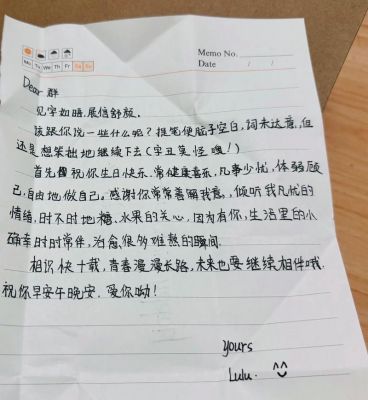 Memo No.
Mo Tu We Th Fr Sa Su
Date / /
Dear 群
见字如晤,展信舒颜。
该跟你说一些什么呢?提笔便脑子空白,词未达意,但
还是想笨拙地继续下去(字丑莫怪噢!)
首先祝你生日快乐,常健康喜乐,凡事少忧,体弱顾
己,自由地做自己。感谢你常常善解我意,倾听我凡忧的
情绪,时不时地糖、水果的关心,因为有你,生活里的小
确幸时时常伴,治愈很多难熬的瞬间.
相识快十载,青春漫漫长路,未来也要继续相伴哦.
祝你早安午晚安.爱你呦!
Yours
Lulu. ^^